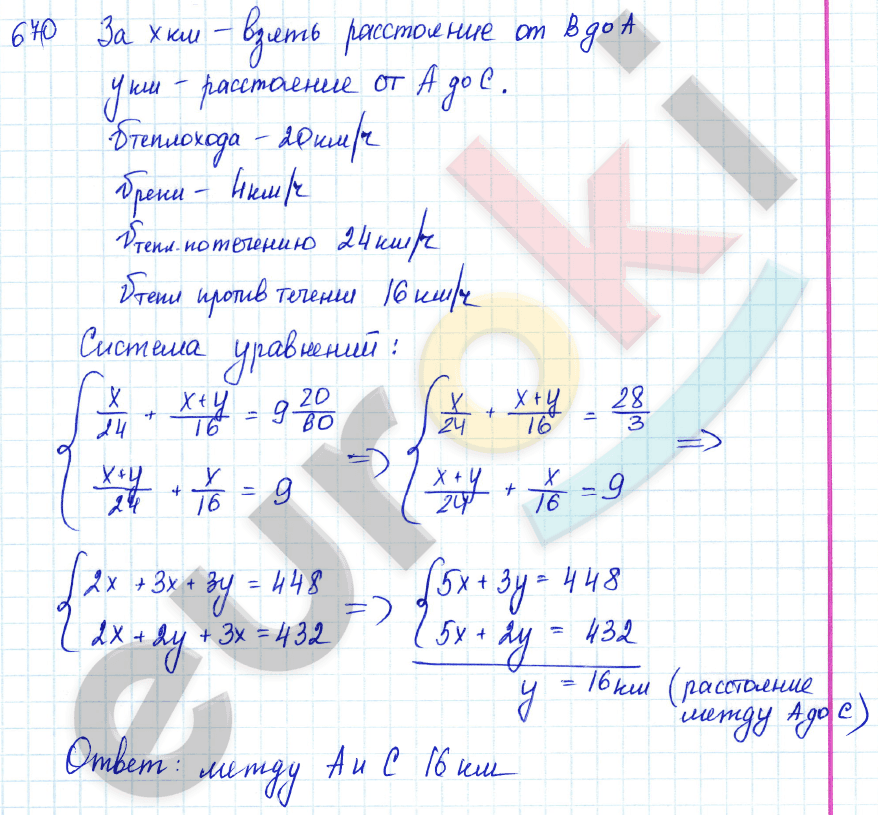 670 За x км – взять расстояние от В до А
y км – расстояние от А до С.
Vтеплохода – 20 км/ч
Vреки – 4 км/ч
Vтепл. по течению 24 км/ч
Vтепл против течения 16 км/ч
Система уравнений:
{ x/24 + (x+y)/16 = 9 20/60 => { x/24 + (x+y)/16 = 28/3 =>
{ (x+y)/24 + x/16 = 9 { (x+y)/24 + x/16 = 9
{ 2x + 3x + 3y = 448 => { 5x + 3y = 448
{ 2x + 2y + 3x = 432 { 5x + 2y = 432
y = 16 км (расстояние
между А до С)
Ответ: между А и С 16 км
euroki